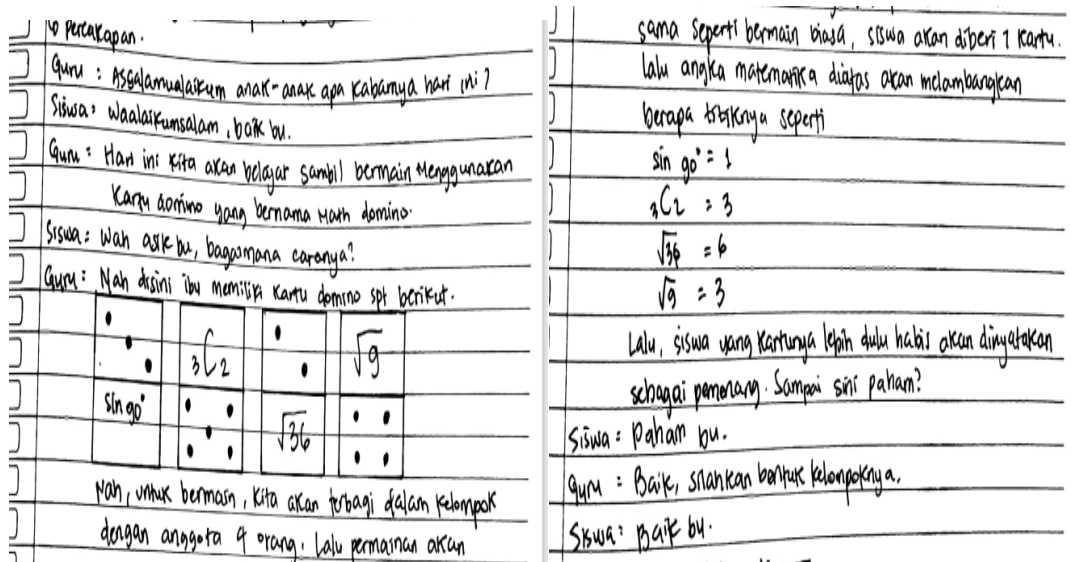 6 percakapan.
Guru : Assalamualaikum anak-anak apa kabarnya hari ini?
Siswa : Waalaikumsalam, baik bu.
Guru : Hari ini kita akan belajar sambil bermain menggunakan
kartu domino yang bernama Math domino.
Siswa : Wah asik bu, bagaimana caranya?
Guru : Nah disini ibu memiliki kartu domino spt berikut.
₃C₂ √9
sin 90° √36
Nah, untuk bermain, kita akan terbagi dalam kelompok
dengan anggota 4 orang. Lalu permainan akan
sama seperti bermain biasa, siswa akan diberi 7 kartu.
Lalu angka matematika diatas akan melambangkan
berapa titiknya seperti
sin 90° = 1
₃C₂ = 3
√36 = 6
√9 = 3
Lalu, siswa yang kartunya lebih dulu habis akan dinyatakan
sebagai pemenang. Sampai sini paham?
Siswa : Paham bu.
Guru : Baik, silahkan bentuk kelompoknya.
Siswa : Baik bu.